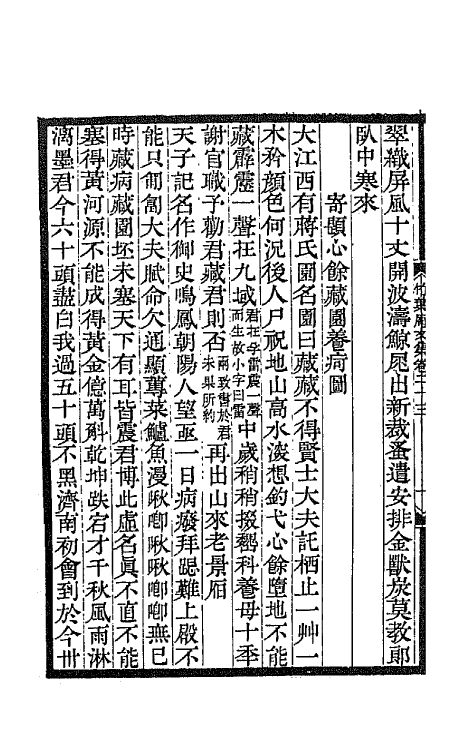 翠織屏風十丈開波濤鯨尾出新裁蚤遣安排金獸炭莫教郎
臥中寒來
寄題心餘藏園養疴圖
大江西有蔣氏園名園曰藏藏不得賢士大夫託栖止一艸一
木矜顏色何況後人尸祝地山高水深想釣弋心餘墮地不能
藏霹靂一聲在九域君在孕雷震一聲而生故小字曰雷中歲稍稍掇巍科養母十年
謝官職子勸君藏君則否兩致書於君未果所約再出山來老景厄
天子記名作御史鳴鳳朝陽人望亟一日病癈拜跽難上殿不
能只匍匐大夫賦命欠通顯蓴菜鱸魚漫啾唧啾啾唧唧無已
時藏病藏園坯未塞天下有耳皆震君博此虛名眞不直不能
塞得黃河源不能成得黃金億萬斛乾坤跌宕才千秋風雨淋
漓墨君今六十頭盡白我過五十頭不黑濟南初會到於今卅
竹葉庵文集卷二十三